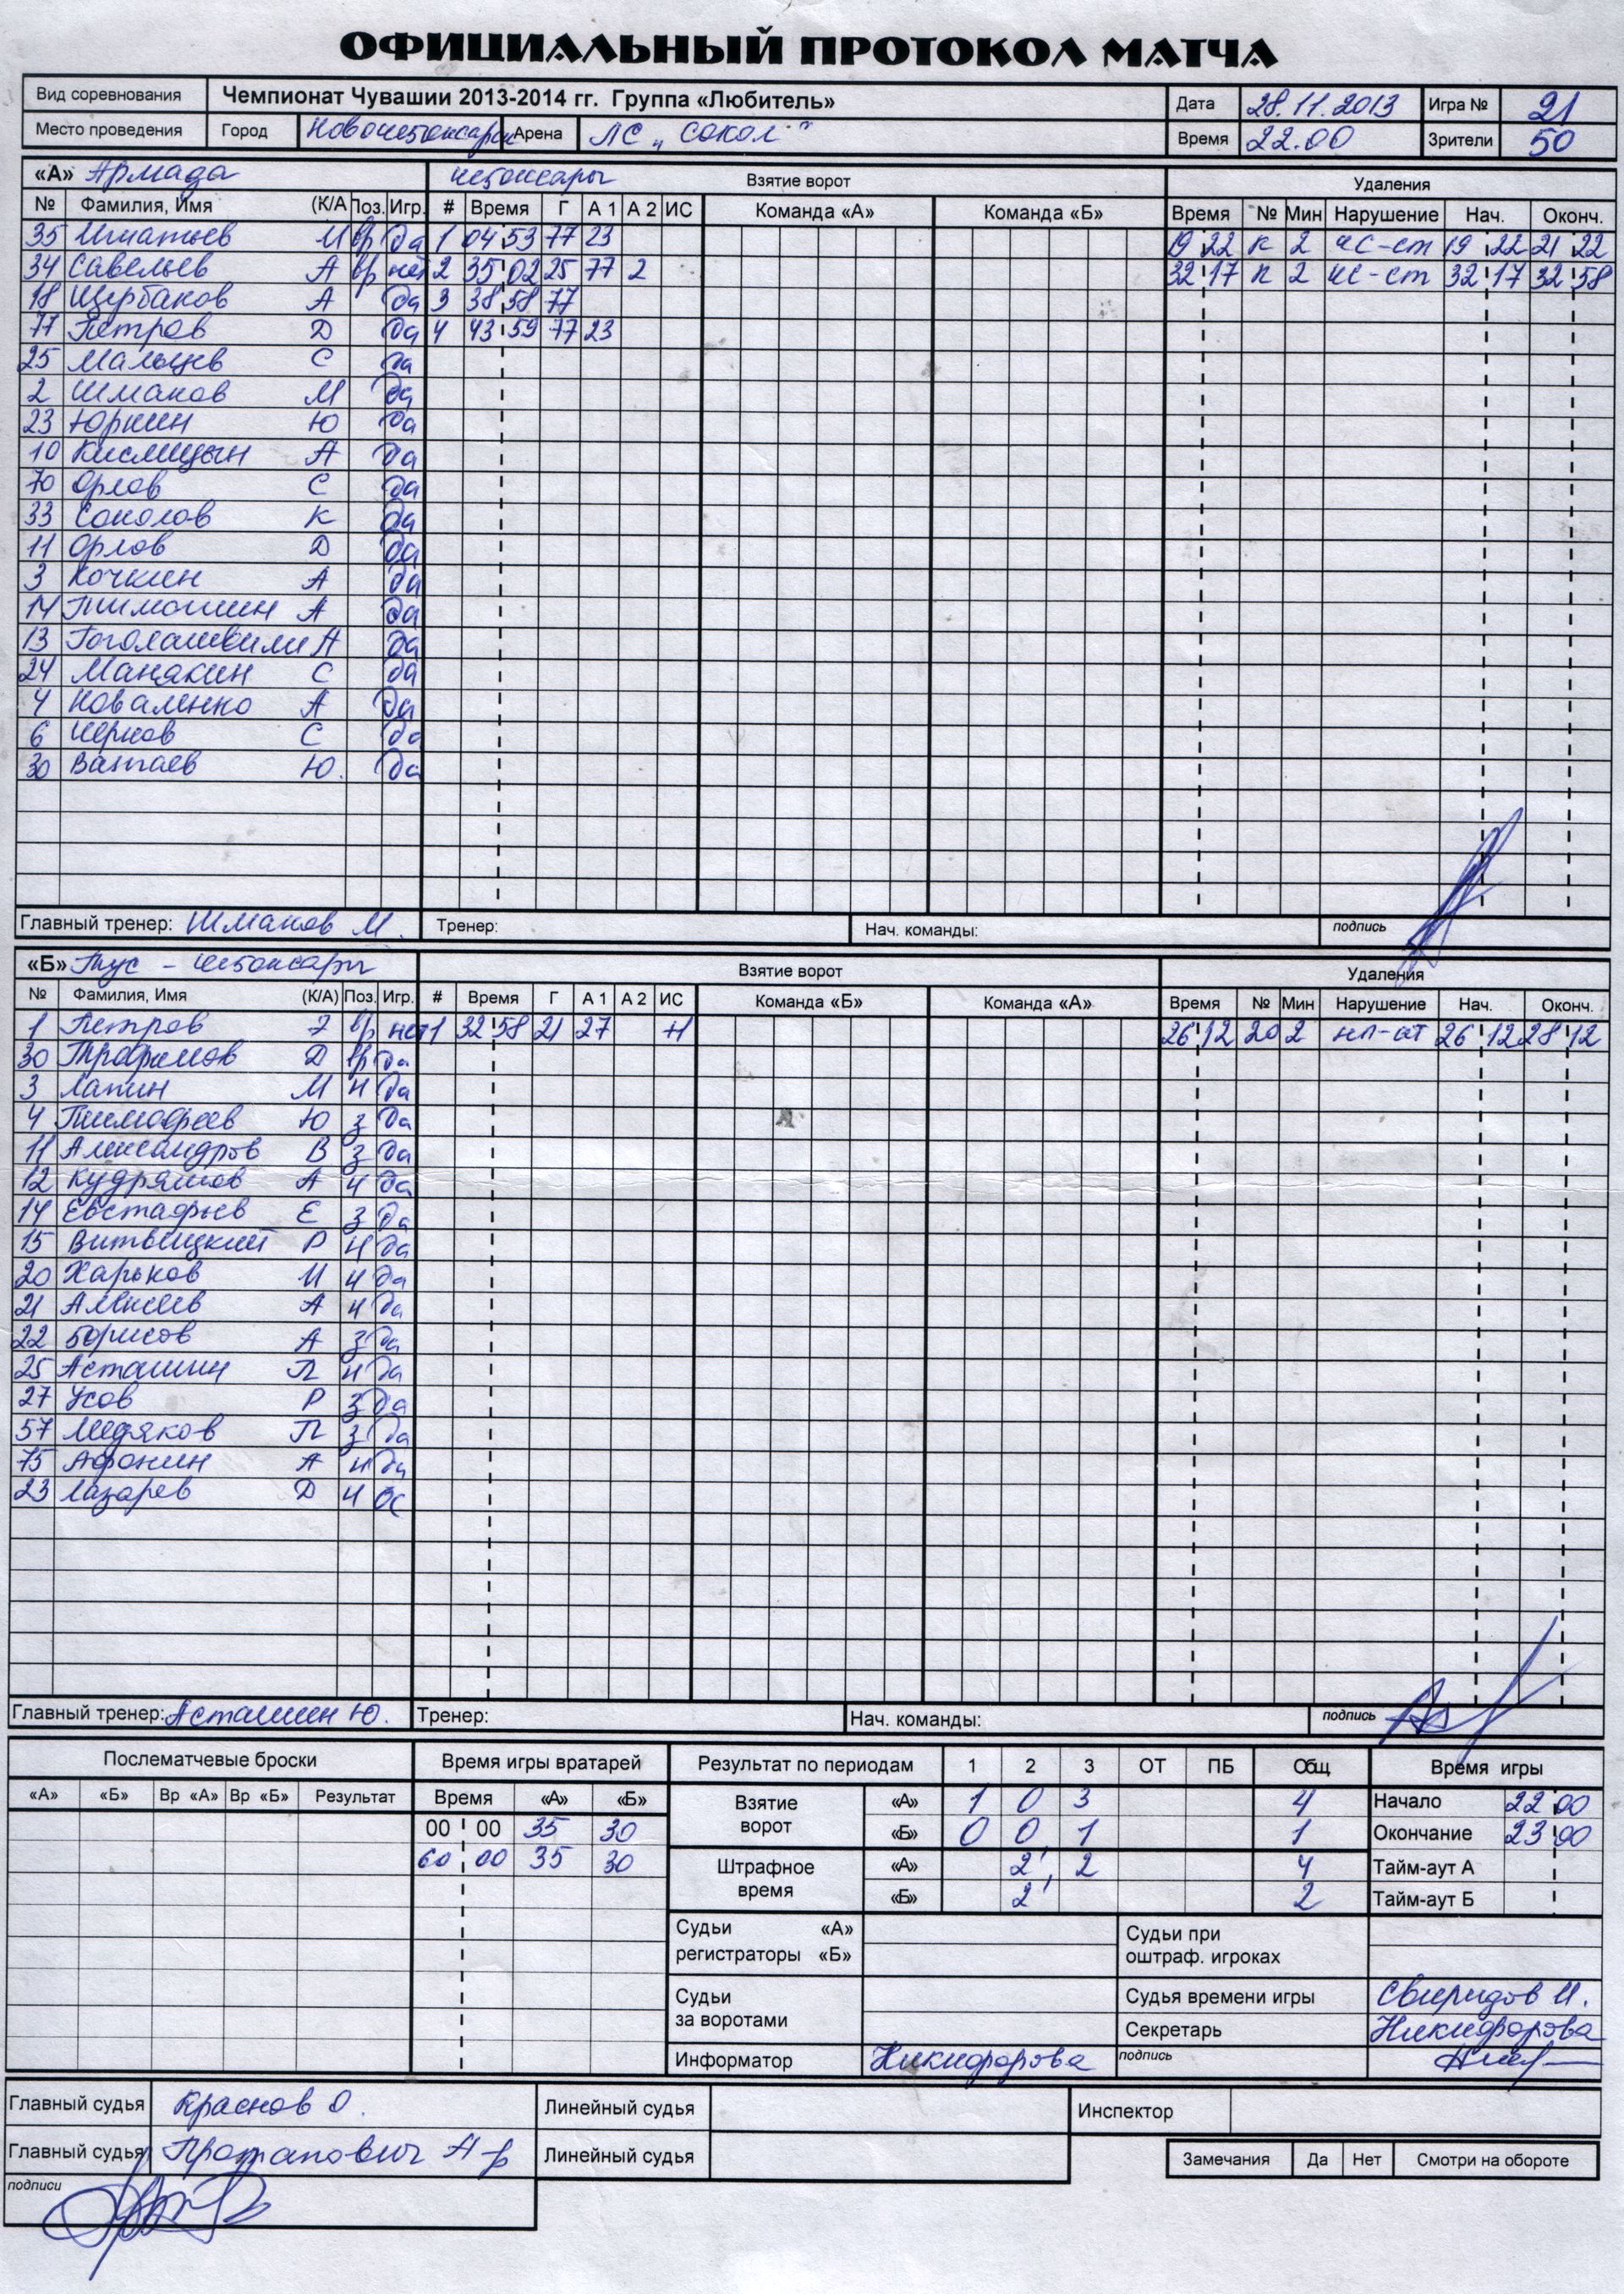 ОФИЦИАЛЬНЫЙ ПРОТОКОЛ МАТЧА
Вид соревнования Чемпионат Чувашии 2013-2014 гг. Группа «Любитель» Дата 28.11.2013 Игра № 21
Место проведения Город Новочебоксарск Арена ЛС „Сокол" Время 22.00 Зрители 50
«А» Армада Чебоксары Взятие ворот Удаления
№ Фамилия, Имя (К/А Поз. Игр. # Время Г А 1 А 2 ИС Команда «А» Команда «Б» Время № Мин Нарушение Нач. Оконч.
35 Игнатьев И вр да 1 04 53 77 23 19 22 К 2 чс-ст 19 22 21 22
34 Савельев А вр нет 2 35 02 25 77 2 32 17 К 2 чс-ст 32 17 32 58
18 Щербаков А да 3 38 58 77
77 Петров Д да 4 43 59 77 23
25 Мальцев С да
2 Шмаков М да
23 Юркин Ю да
10 Кислицын А да
70 Орлов С да
33 Соколов К да
11 Орлов Д да
3 Кочкин А да
14 Тимошин А да
13 Гоголашвили А да
24 Манякин С да
4 Коваленко А да
6 Чернов С да
30 Ватаев Ю. да
Главный тренер: Шмаков М. Тренер: Нач. команды: подпись
«Б» Тус - Чебоксары Взятие ворот Удаления
№ Фамилия, Имя (К/А) Поз. Игр. # Время Г А 1 А 2 ИС Команда «Б» Команда «А» Время № Мин Нарушение Нач. Оконч.
1 Петров Э вр нет 1 32 58 21 27 +1 26 12 20 2 нп-ат 26 12 28 12
30 Трофимов Д вр да
3 Лапин М н да
4 Тимофеев Ю з да
11 Александров В з да
12 Кудряшов А н да
14 Евстафьев Е з да
15 Витвицкий Р н да
20 Харьков И н да
21 Алексеев А н да
22 Борисов А з да
25 Асташин П н да
27 Усов Р з да
57 Медяков П з да
75 Афонин А н да
23 Лазарев Д н
Главный тренер: Асташин Ю. Тренер: Нач. команды: подпись
Послематчевые броски Время игры вратарей Результат по периодам 1 2 3 ОТ ПБ Общ Время игры
«А» «Б» Вр «А» Вр «Б» Результат Время «А» «Б» Взятие ворот «А» 1 0 3 4 Начало 22 00
00 00 35 30 «Б» 0 0 1 1 Окончание 23 00
60 00 35 30 Штрафное время «А» 2' 2 4 Тайм-аут А
«Б» 2' 2 Тайм-аут Б
Судьи регистраторы «А» «Б» Судьи при оштраф. игроках
Судьи за воротами Судья времени игры Свиридов И.
Секретарь Никифорова
Информатор Никифорова подпись
Главный судья Краснов О. Линейный судья Инспектор
Главный судья Протапович А-р Линейный судья Замечания Да Нет Смотри на обороте
подписи